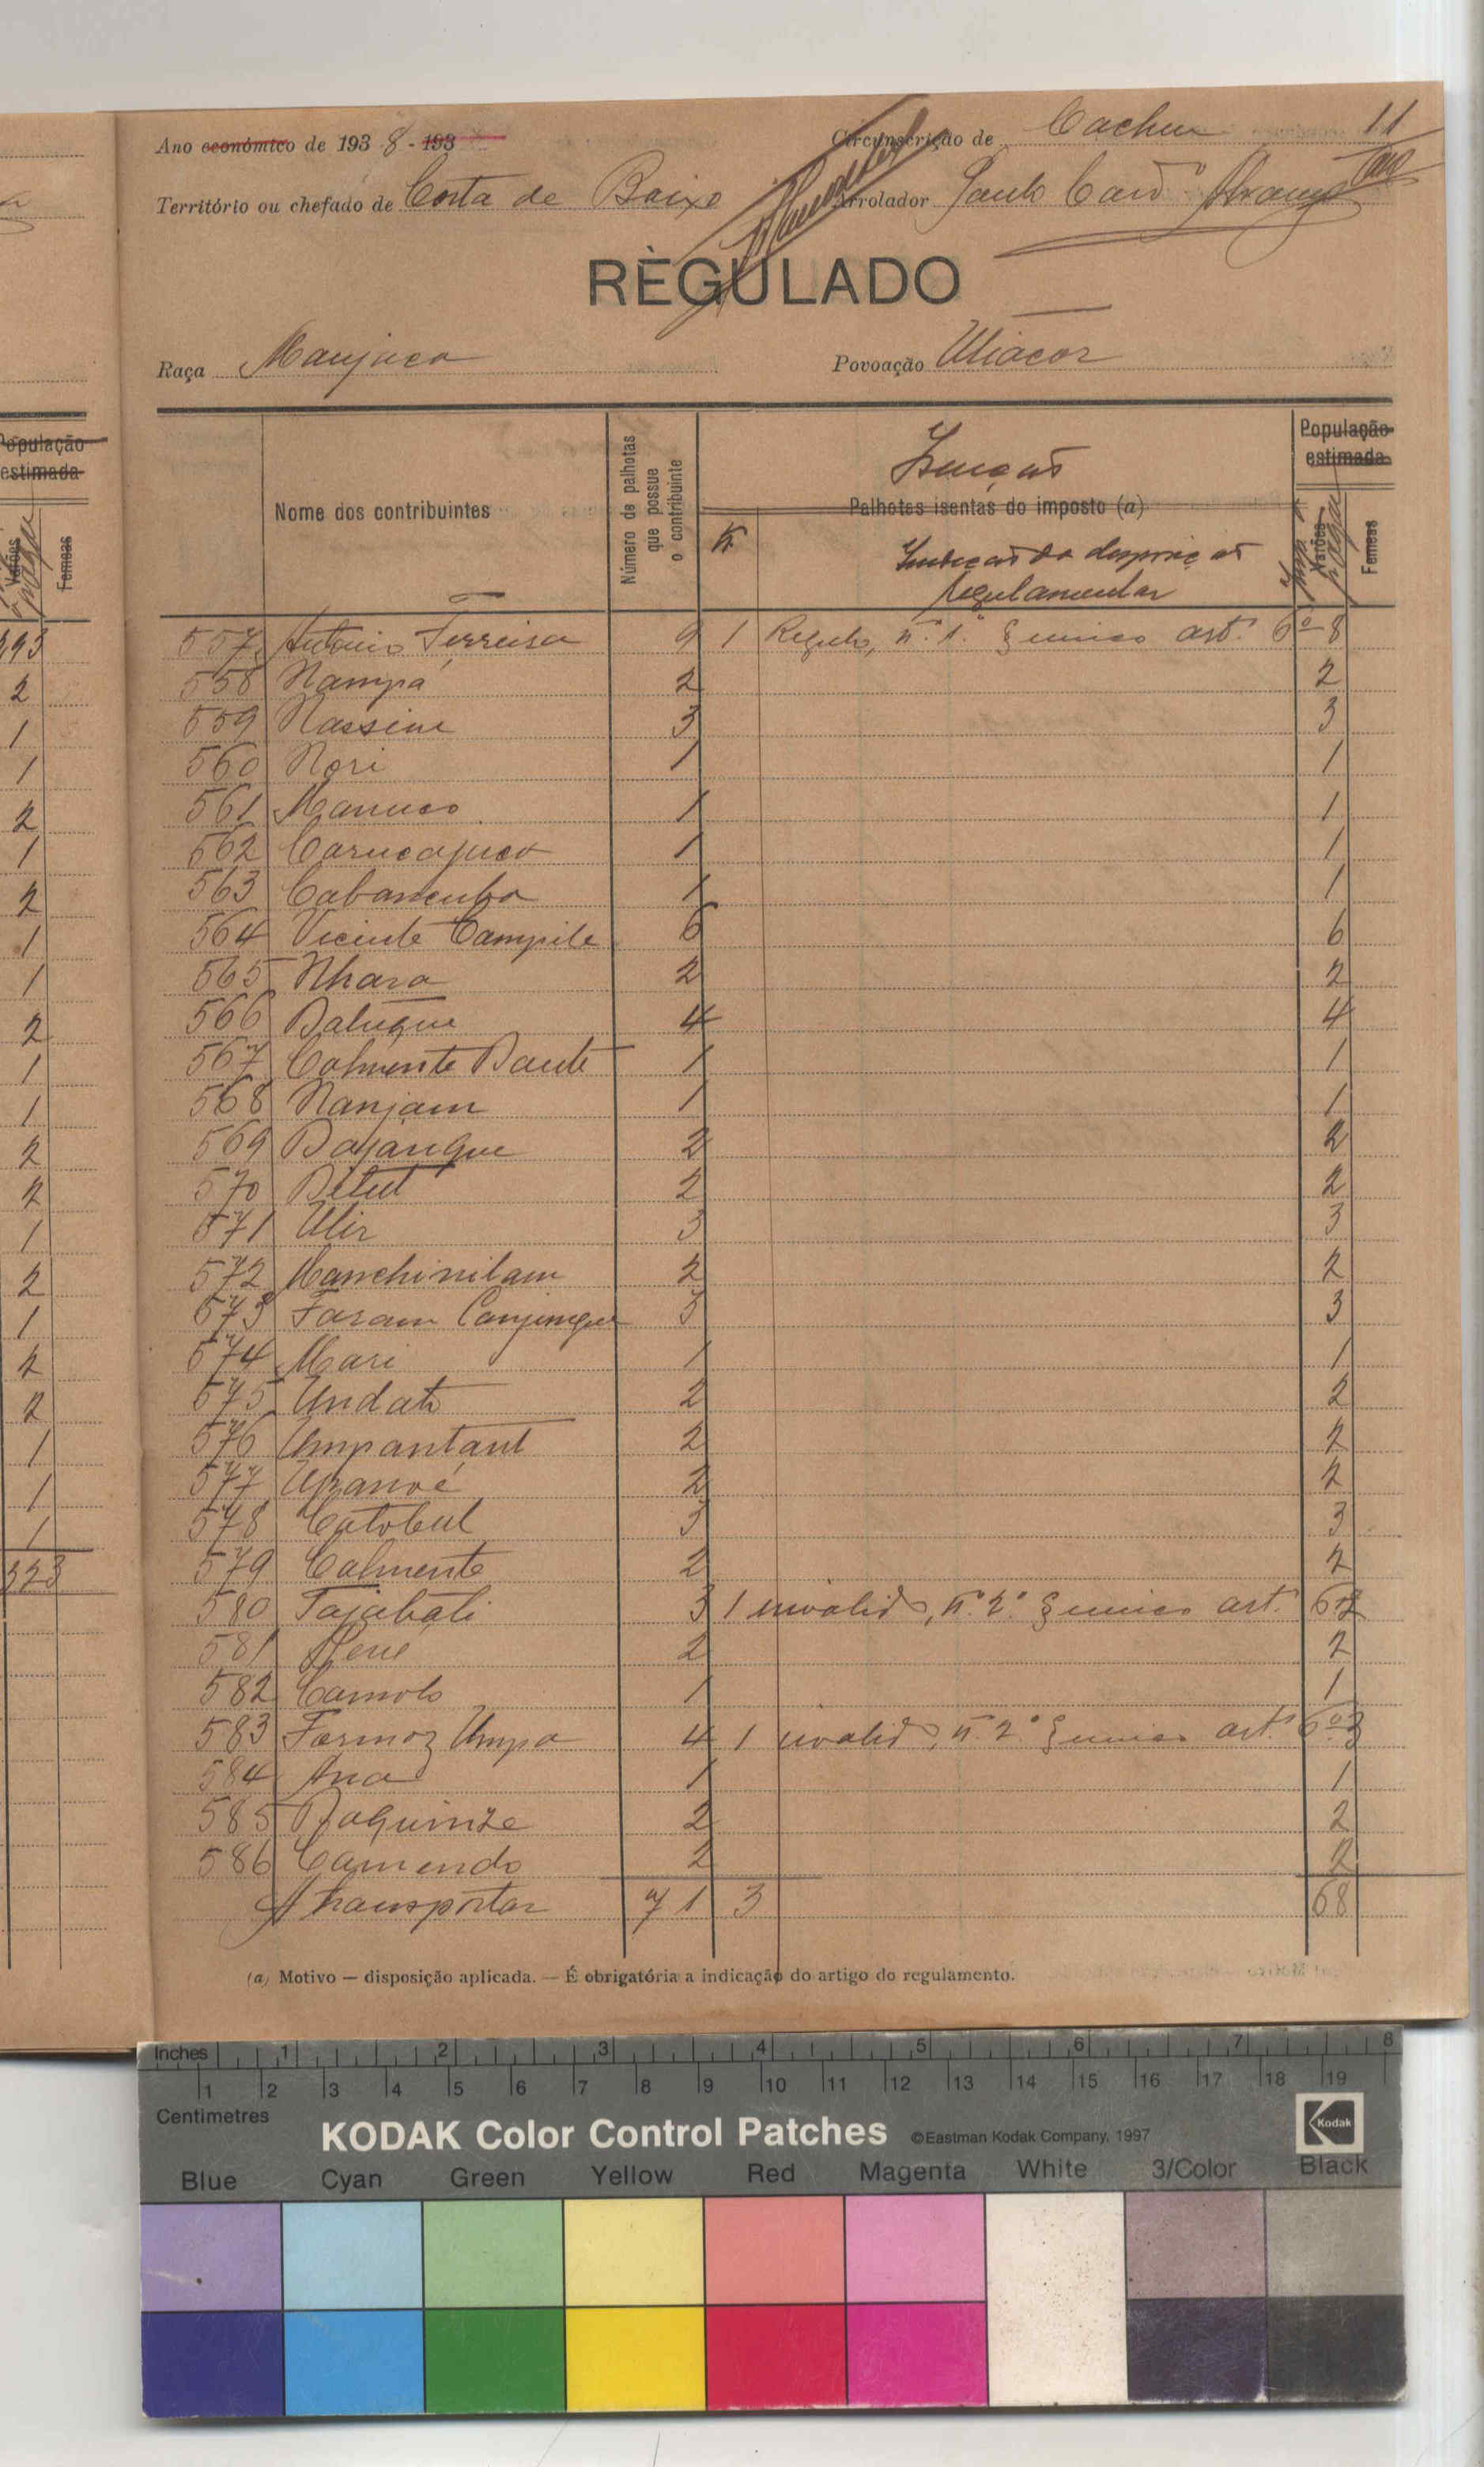 11
Ano económico de 1938-193
Circunscrição de Cacheu
Território ou chefado de Costa de Baixo
Arrolador Paulo
REGULADO
Raça Manjaca
Povoação Uiacor
População estimada
Varões
Femeas
193
2
1
1
2
1
2
1
1
2
1
1
2
2
1
2
1
2
2
1
1
1
323
Nome dos contribuintes
Número de palhotas que possue o contribuinte
Isenções
Palhotas isentas do imposto (a)
N.º
Indicação da disposição
regulamentar
População estimada
Varões
Femeas
557 Antonio Ferreira 9 1 Regulo, n.º 1.º § unico art.º 6º 8
558 Nampá 2 2
559 Nassim 3 3
560 Nori 1 1
561 Manuco 1 1
562 Carucajuca 1 1
563 1 1
564 Vicente Campile 6 6
565 Nhara 2 2
566 Batuque 4 4
567 Calmente 1 1
568 Nanjam 1 1
569 Bajanque 2 2
570 Betut 2 2
571 Ulir 3 3
572 Manchinilam 2 2
573 Faram Canjinque 3 3
574 Mari 1 1
575 Undato 2 2
576 Umpantaut 2 2
577 2 2
578 Catobeul 3 3
579 Calmente 2 2
580 Tajabali 3 1 invalido, n.º 2.º § unico art.º 6º 2
581 2 2
582 Camolo 1 1
583 Farmoz Umpa 4 1 invalido, n.º 2.º § unico art.º 6º 3
584 Ana 1 1
585 Baquinze 2 2
586 Camendo 2 2
A transportar 71 3 68
(a) Motivo — disposição aplicada. — É obrigatória a indicação do artigo do regulamento.
Inches 1 2 3 4 5 6 7 8
1 2 3 4 5 6 7 8 9 10 11 12 13 14 15 16 17 18 19
Centimetres
KODAK Color Control Patches ©Eastman Kodak Company, 1997
Kodak
Blue Cyan Green Yellow Red Magenta White 3/Color Black